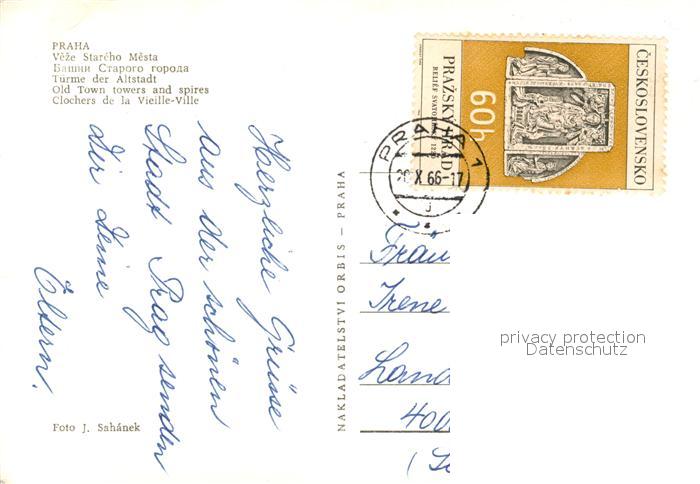 PRAHA
Věže Starého Města
Башни Старого города
Türme der Altstadt
Old Town towers and spires
Clochers de la Vieille-Ville
Herzliche Grüsse
aus der schönen
Stadt Prag senden
dir deine
Eltern.
Foto J. Sahánek
NAKLADATELSTVÍ ORBIS – PRAHA
ČESKOSLOVENSKO
60h
PRAŽSKÝ HRAD
RELIÉF
PRAHA 1
X 66-17
j
Fräu
Irene
Lan
400
privacy protection
Datenschutz